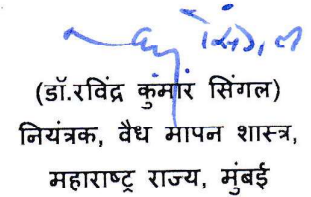 (डॉ.रविंद्र कुमार सिंगल)
नियंत्रक, वैध मापन शास्त्र,
महाराष्ट्र राज्य, मुंबई